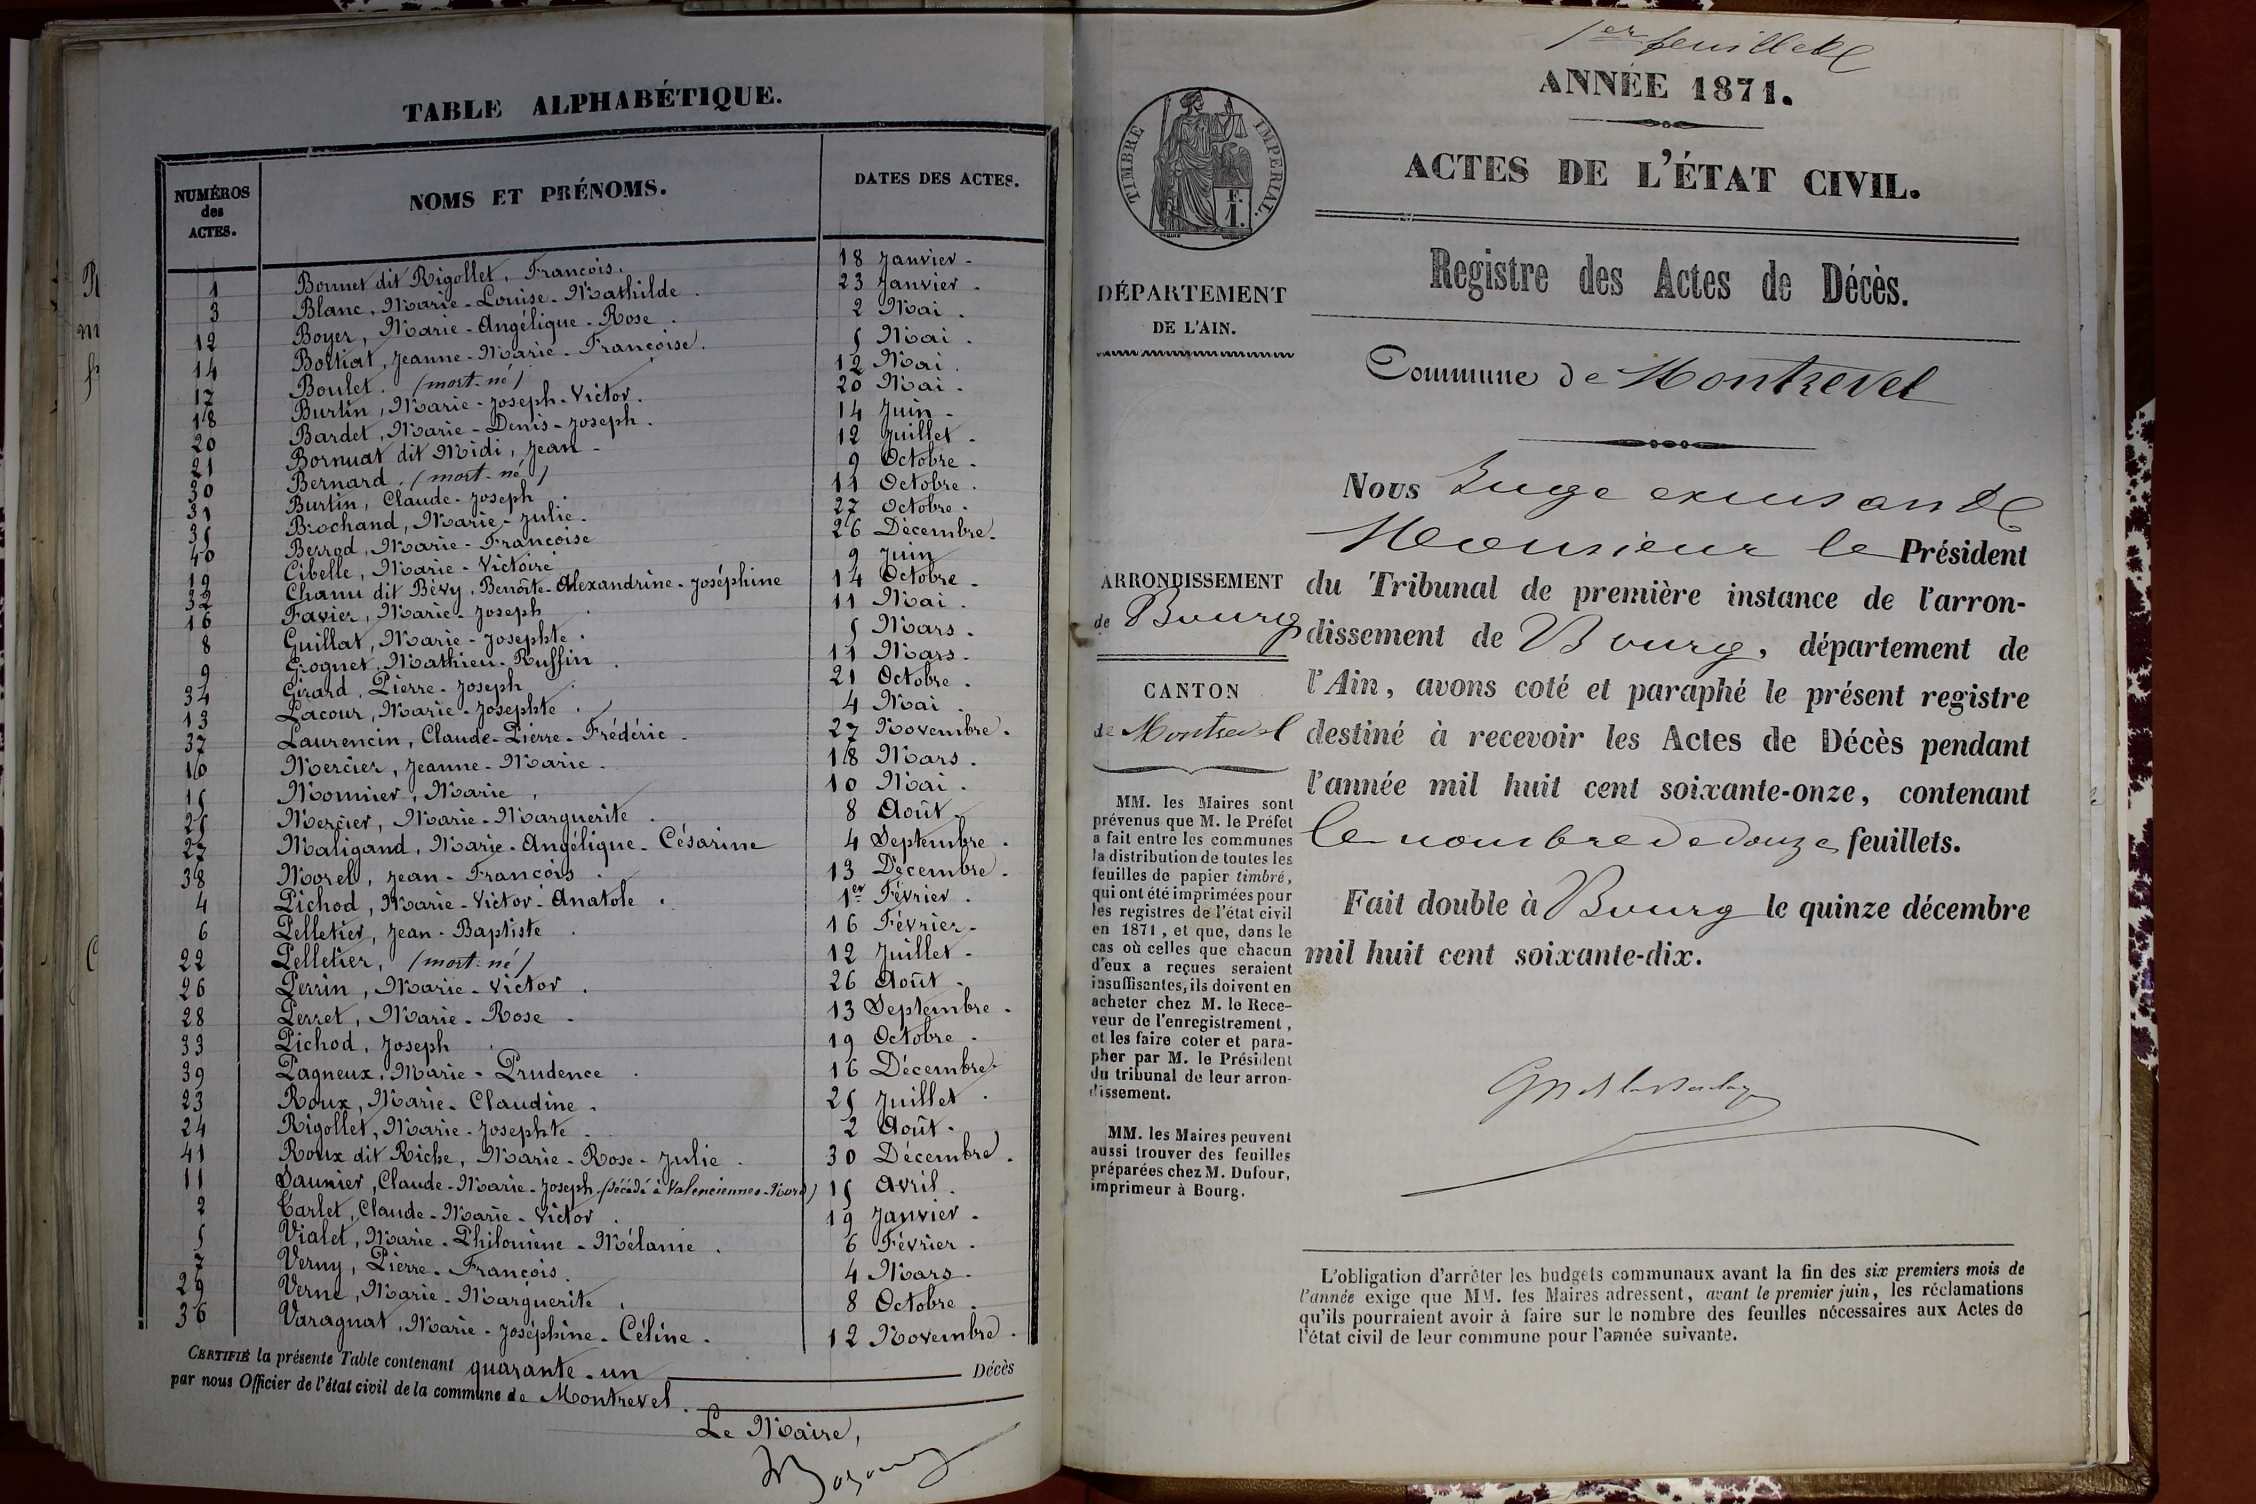 TABLE ALPHABÉTIQUE.
NUMÉROS des ACTES. NOMS ET PRÉNOMS. DATES DES ACTES.
1 Bonnet dit Rigollet, François. 18 Janvier.
3 Blanc, Marie-Louise-Mathilde. 23 Janvier.
12 Boyer, Marie-Angélique-Rose. 2 Mai.
14 Bottiat, Jeanne-Marie-Françoise. 5 Mai.
17 Boulet. (mort-né) 12 Mai.
18 Burtin, Marie-Joseph-Victor. 20 Mai.
20 Bardet, Marie-Denis-Joseph. 14 Juin.
21 Bornuat dit Midi, Jean. 12 Juillet.
30 Bernard. (mort-né) 9 Octobre.
31 Burtin, Claude-Joseph. 11 Octobre.
35 Brochand, Marie-Julie. 27 Octobre.
40 Berrod, Marie-Françoise 26 Décembre.
19 Cibelle, Marie-Victoire 9 Juin
32 Chanu dit Bévy, Benoîte-Alexandrine-Joséphine 14 Octobre.
16 Favier, Marie-Joseph. 11 Mai.
8 Guillat, Marie-Josephte. 5 Mars.
9 Grognet, Mathieu-Ruffin. 11 Mars.
34 Girard, Pierre-Joseph. 21 Octobre.
13 Lacour, Marie-Josephte. 4 Mai.
37 Laurencin, Claude-Pierre-Frédéric. 27 Novembre.
10 Mercier, Jeanne-Marie. 18 Mars.
15 Monnier, Marie, 10 Mai.
25 Mercier, Marie-Marguerite. 8 Août.
27 Maligand, Marie-Angélique-Césarine 4 Septembre.
38 Morel, Jean-François. 13 Décembre.
4 Pichod, Marie-Victor-Anatole. 1er Février.
6 Pelletier, Jean-Baptiste. 16 Février.
22 Pelletier, (mort-né) 12 Juillet.
26 Perrin, Marie-Victor. 26 Août.
28 Perret, Marie-Rose. 13 Septembre.
33 Pichod, Joseph. 19 Octobre.
39 Pagneux, Marie-Prudence. 16 Décembre
23 Roux, Marie-Claudine. 25 Juillet.
24 Rigollet, Marie-Josephte. 2 Août.
41 Roux dit Riche, Marie-Rose-Julie. 30 Décembre.
11 Saunier, Claude-Marie-Joseph (décédé à Valenciennes-Nord) 15 Avril.
2 Tarlet, Claude-Marie-Victor. 19 Janvier.
5 Vialet, Marie-Philomène-Mélanie. 6 Février.
7 Verny, Pierre-François. 4 Mars.
29 Verne, Marie-Marguerite. 8 Octobre.
36 Varagnat, Marie-Joséphine-Céline. 12 Novembre.
CERTIFIÉ la présente Table contenant quarante-un Décès
par nous Officier de l'état civil de la commune de Montrevel.
Le Maire,
1er feuillet
ANNÉE 1871.
TIMBRE IMPÉRIAL.
F.
1.
ACTES DE L'ÉTAT CIVIL.
Registre des Actes de Décès.
DÉPARTEMENT
DE L'AIN.
Commune de Montrevel
ARRONDISSEMENT
de Bourg
CANTON
de Montrevel
MM. les Maires sont
prévenus que M. le Préfet
a fait entre les communes
la distribution de toutes les
feuilles de papier timbré,
qui ont été imprimées pour
les registres de l'état civil
en 1871, et que, dans le
cas où celles que chacun
d'eux a reçues seraient
insuffisantes, ils doivent en
acheter chez M. le Rece-
veur de l'enregistrement,
et les faire coter et para-
pher par M. le Président
du tribunal de leur arron-
dissement.
MM. les Maires peuvent
aussi trouver des feuilles
préparées chez M. Dufour,
imprimeur à Bourg.
Nous Juge
Monsieur le Président
du Tribunal de première instance de l'arron-
dissement de Bourg, département de
l'Ain, avons coté et paraphé le présent registre
destiné à recevoir les Actes de Décès pendant
l'année mil huit cent soixante-onze, contenant
le nombre de douze feuillets.
Fait double à Bourg le quinze décembre
mil huit cent soixante-dix.
L'obligation d'arrêter les budgets communaux avant la fin des six premiers mois de
l'année exige que MM. les Maires adressent, avant le premier juin, les réclamations
qu'ils pourraient avoir à faire sur le nombre des feuilles nécessaires aux Actes de
l'état civil de leur commune pour l'année suivante.